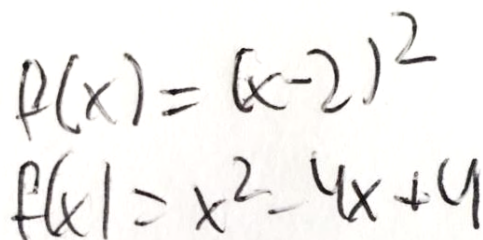 f(x) = (x-2)²
f(x) = x² - 4x + 4